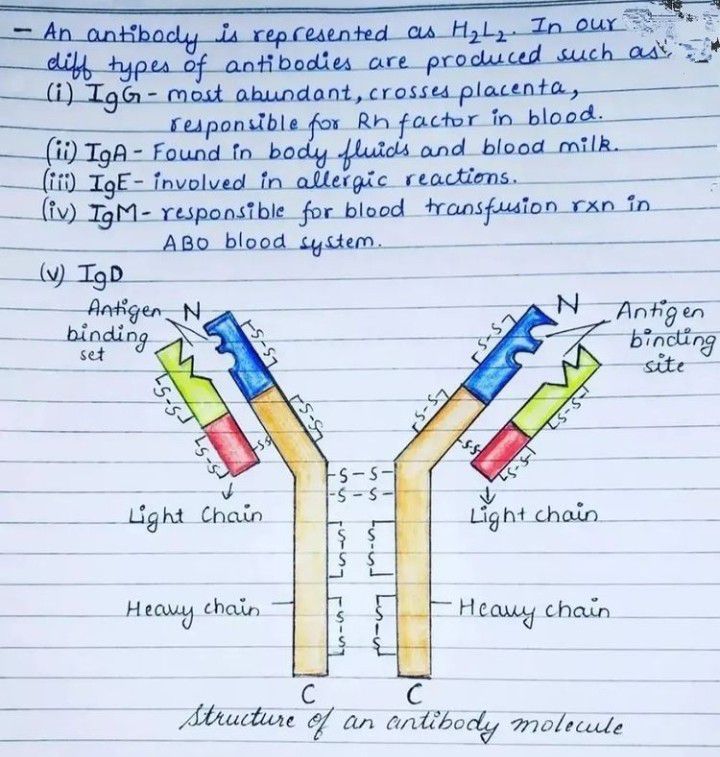 - An antibody is represented as H₂L₂. In our
diff types of antibodies are produced such as
(i) IgG - most abundant, crosses placenta,
responsible for Rh factor in blood.
(ii) IgA - Found in body fluids and blood milk.
(iii) IgE - involved in allergic reactions.
(iv) IgM - responsible for blood transfusion rxn in
ABO blood system.
(v) IgD
Antigen binding set
N
N
Antigen binding site
S-S
S-S
S-S
S-S
S-S
S-S
S-S
S-S
SS
SS
-S-S-
-S-S-
Light Chain
Light chain
S-S-S
S-S-S
Heavy chain
Heavy chain
S-S-S
S-S-S
C
C
Structure of an antibody molecule